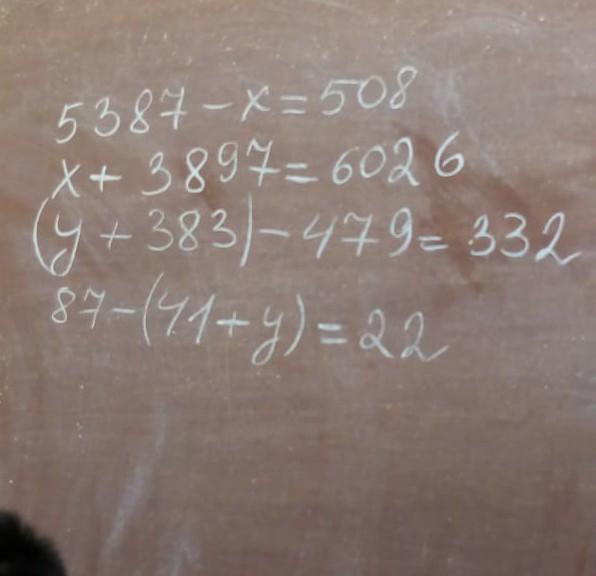 5387 - x = 508
x + 3897 = 6026
(y + 383) - 479 = 332
87 - (41 + y) = 22